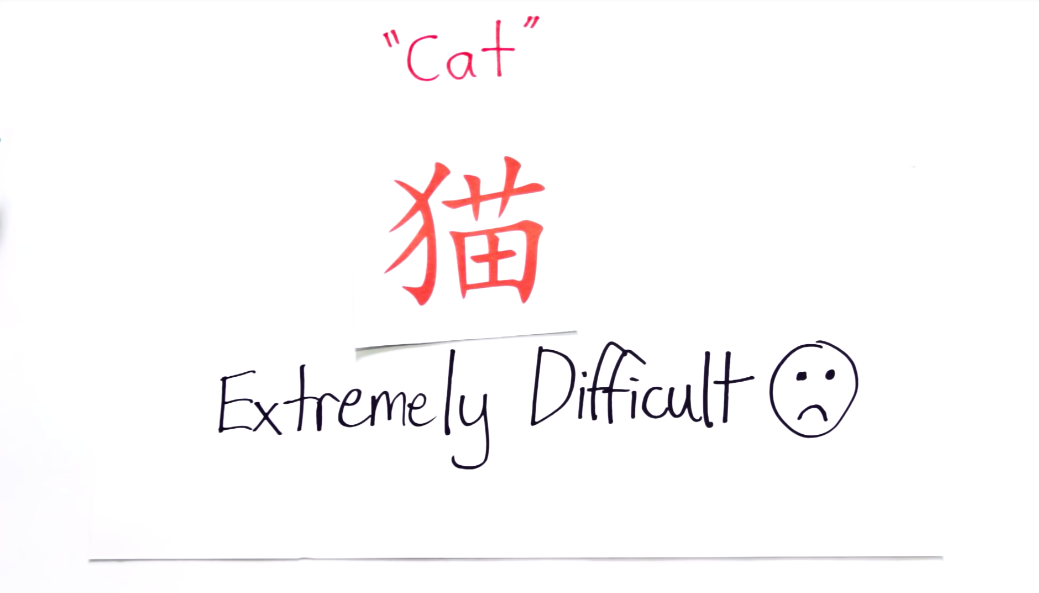 "Cat"
猫
Extremely Difficult